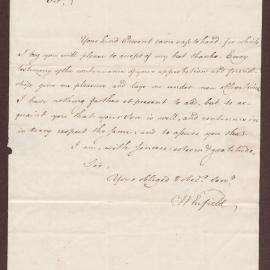 Sir,
Your kind Present came safe to hand, for which
I beg you will please to accept of my best thanks. Every
testimony of the continuance of your approbation and friend-
ship give me pleasure, and lays me under new obligations.
I have nothing farther at present to add, but to ac-
quaint you that your Son is well, and continues in
in every respect the same; and to assure you that
I am, with sincere esteem & gratitude,
Sir,
Your obliged & obed.t Serv.t
W Enfield